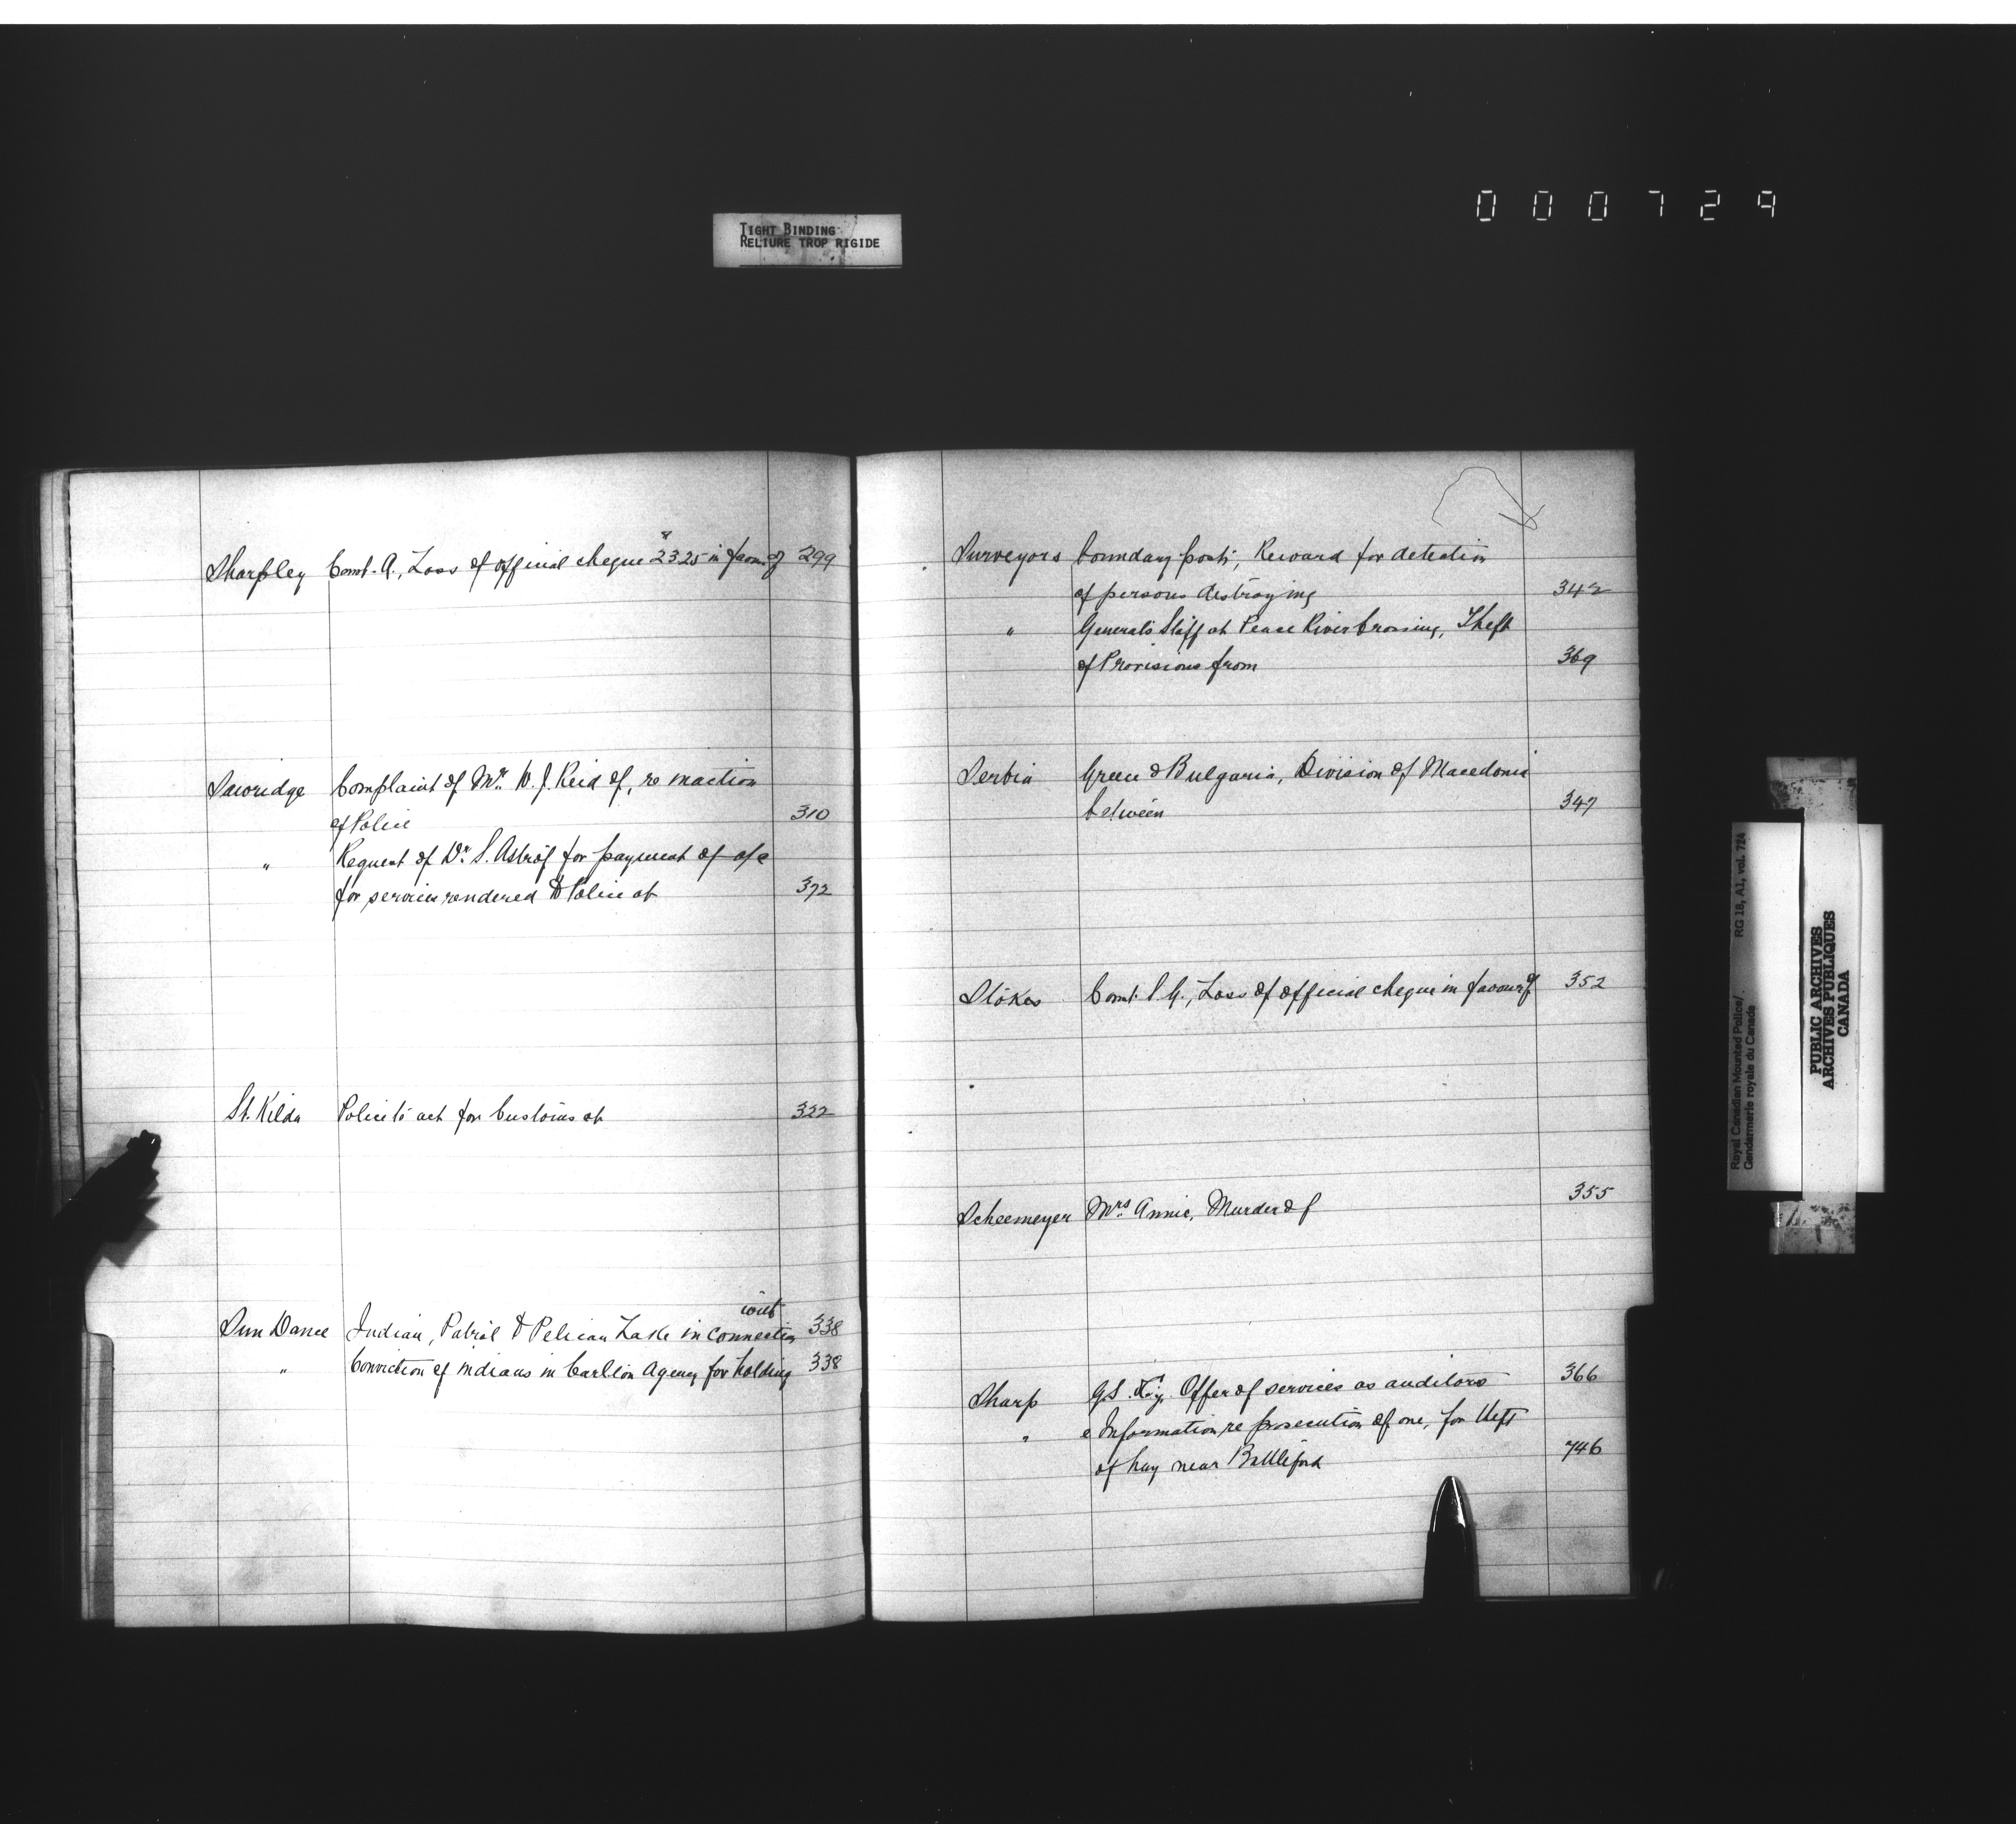 000729
TIGHT BINDING
RELIURE TROP RIGIDE
Sharpley Const. A., Loss of official cheque 2325 in favor of 299
Sawridge Complaint of Mr. W. J. Reid of, re inaction
of Police 310
" Request of Dr. S. for payment of a/c
for services rendered to Police at 372
St. Kilda Police to act for Customs at 322
with
Sun Dance Indian, Patrol to Pelican Lake in connection 338
" Conviction of indians in Carlton Agency for holding 338
Surveyors boundary posts, Reward for detection
of persons destroying 342
" General's Staff at Peace River Crossing, Theft
of Provisions from 369
Serbia Greece & Bulgaria, Division of Macedonia
between 347
Stokes Const. S. G., Loss of official cheque in favour of 352
Scheemeyer Mrs Annie, Murder of 355
Sharp G.S. Offer of services as auditors 366
" Information re prosecution of one, for theft
of hay near Battleford 746
Royal Canadian Mounted Police/ RG 18, A1, vol. 724
Gendarmerie royale du Canada
PUBLIC ARCHIVES
ARCHIVES PUBLIQUES
CANADA